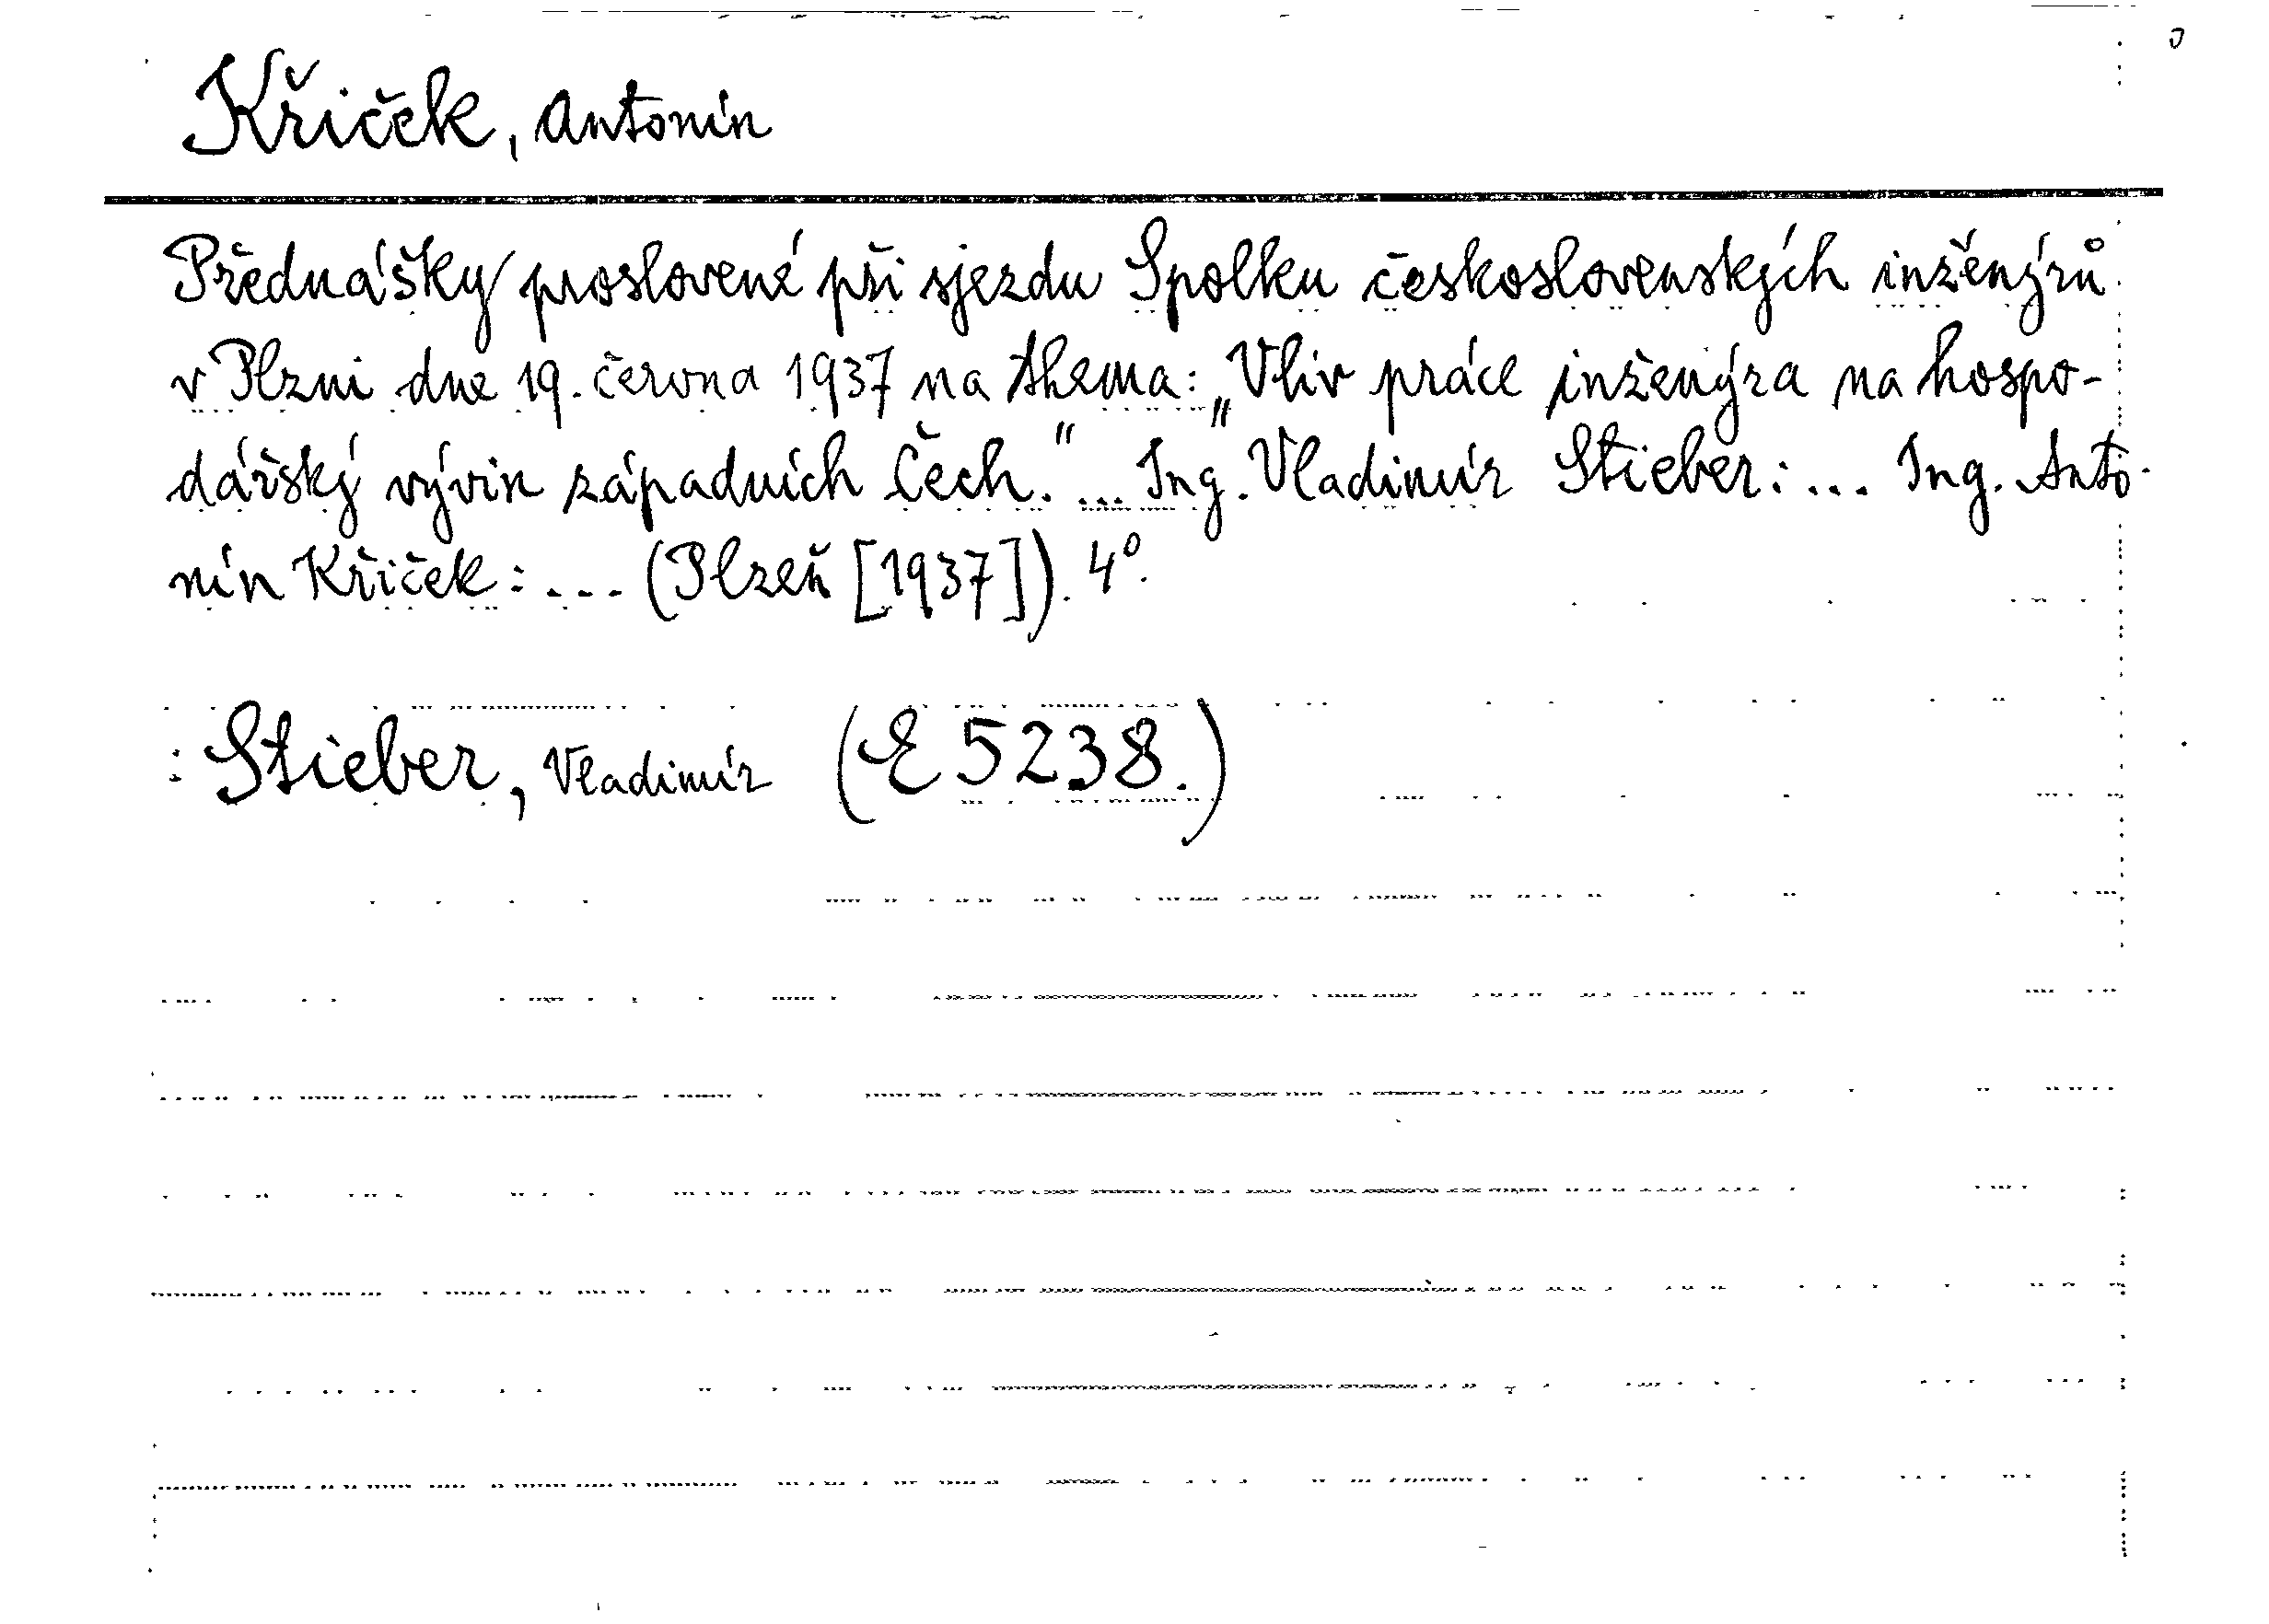 Křiček, Antonín
Přednášky proslovené při sjezdu Spolku československých inženýrů
v Plzni dne 19. června 1937 na thema: „Vliv práce inženýra na hospo-
dářský vývin západních Čech." ... Ing. Vladimír Stieber: ... Ing. Anto-
nín Křiček: ... (Plzeň [1937]). 4°.
: Stieber, Vladimír (E 5238.)